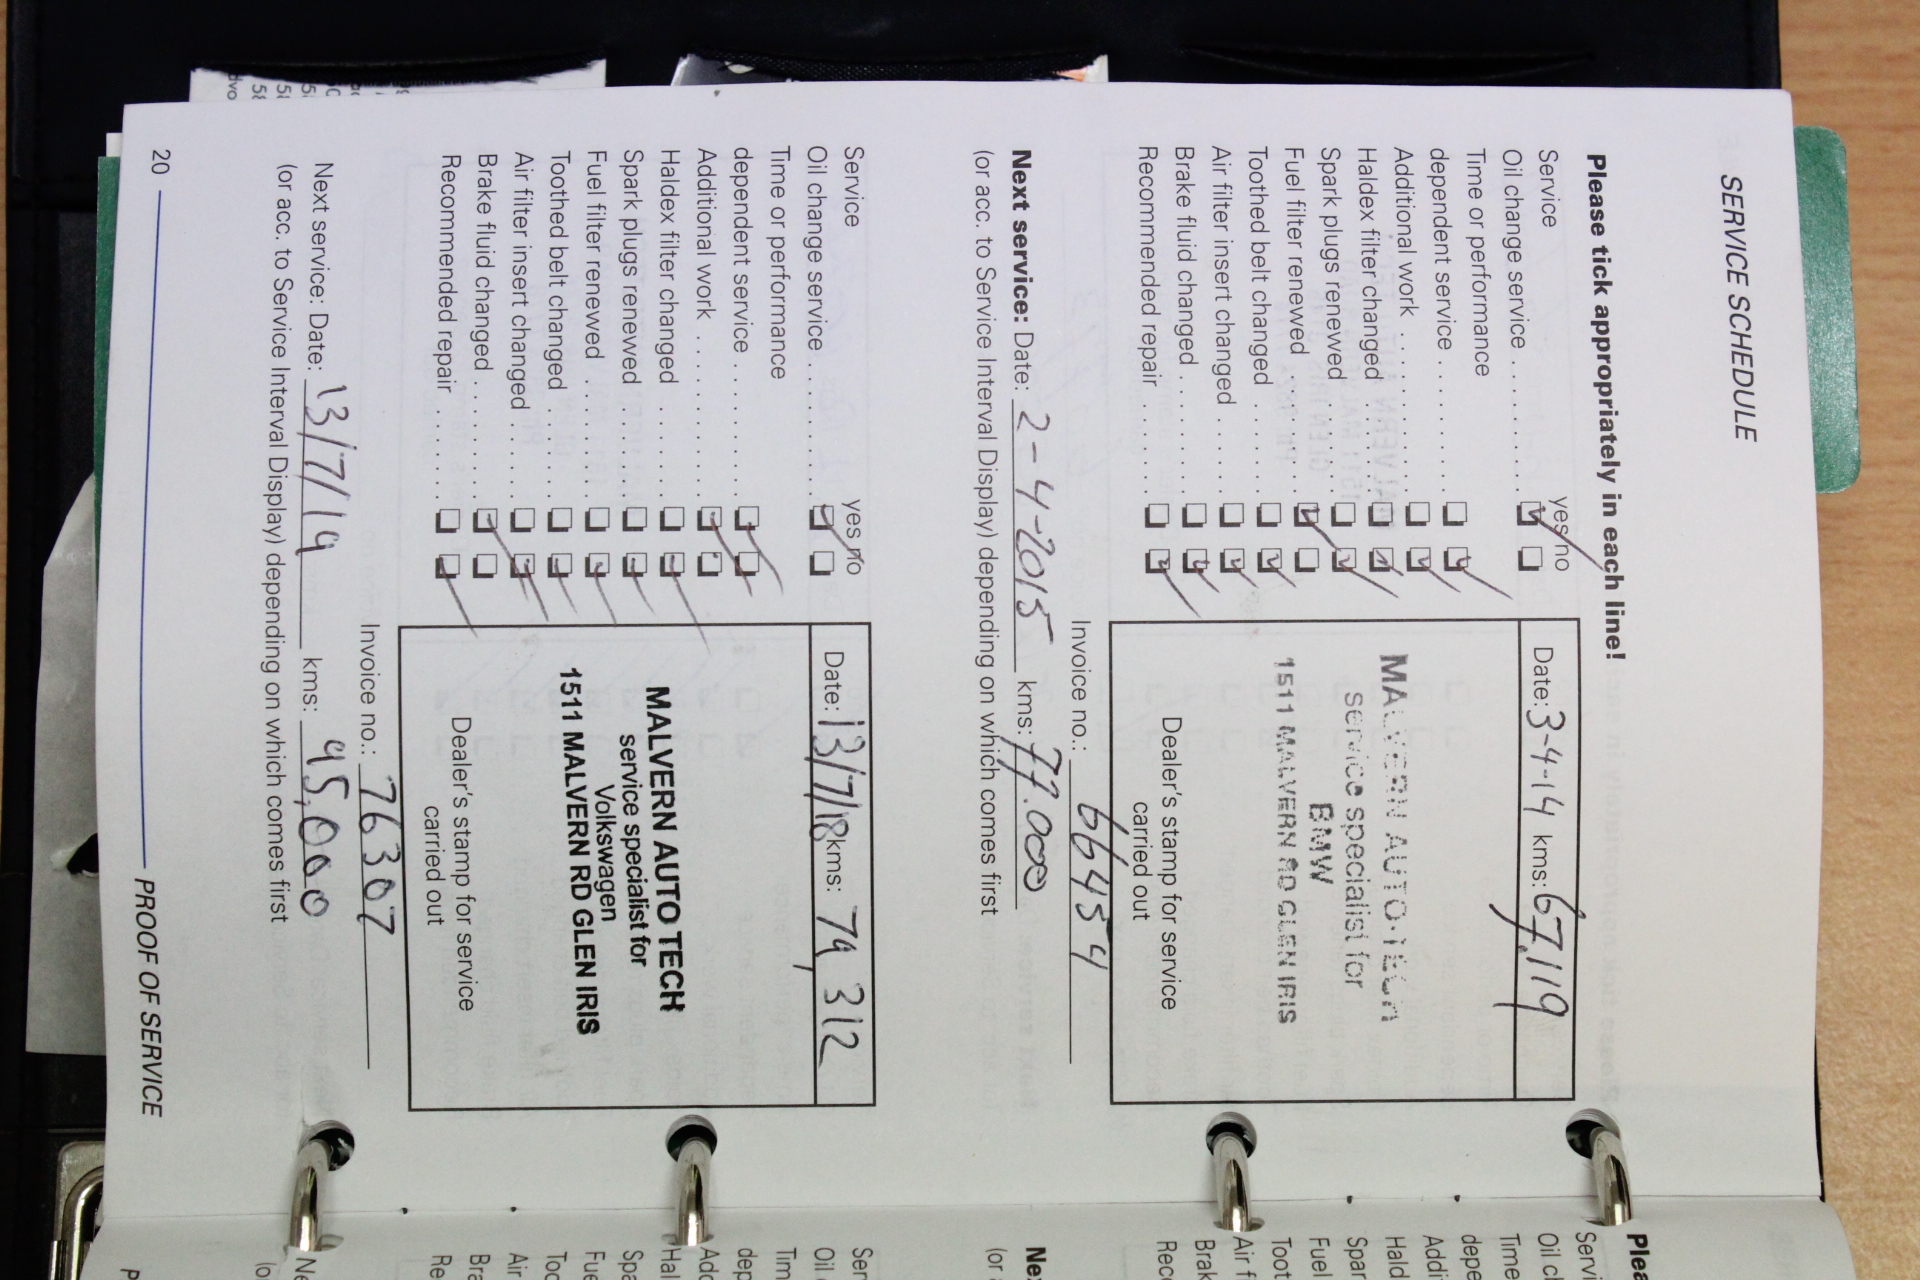 SERVICE SCHEDULE
Please tick appropriately in each line!
Service yes no
Oil change service
Time or performance
dependent service
Additional work
Haldex filter changed
Spark plugs renewed
Fuel filter renewed
Toothed belt changed
Air filter insert changed
Brake fluid changed
Recommended repair
Date: 3-4-14 kms: 67,119
MALVERN AUTO TECH
service specialist for
BMW
1511 MALVERN RD GLEN IRIS
Dealer's stamp for service
carried out
Invoice no.: 66454
Next service: Date: 2-4-2015 kms: 77.000
(or acc. to Service Interval Display) depending on which comes first
Service yes no
Oil change service
Time or performance
dependent service
Additional work
Haldex filter changed
Spark plugs renewed
Fuel filter renewed
Toothed belt changed
Air filter insert changed
Brake fluid changed
Recommended repair
Date: 13/7/18 kms: 79,312
MALVERN AUTO TECH
service specialist for
Volkswagen
1511 MALVERN RD GLEN IRIS
Dealer's stamp for service
carried out
Invoice no.: 76307
Next service: Date: 13/7/19 kms: 95,000
(or acc. to Service Interval Display) depending on which comes first
20 PROOF OF SERVICE